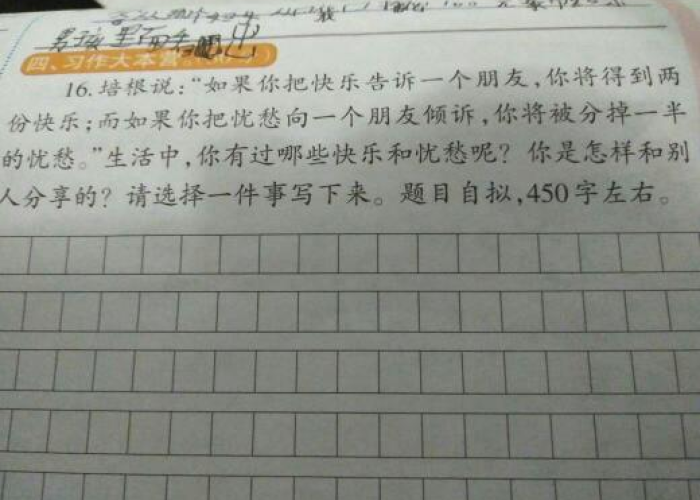 男孩里面
四、习作大本营。
16.培根说:“如果你把快乐告诉一个朋友,你将得到两
份快乐;而如果你把忧愁向一个朋友倾诉,你将被分掉一半
的忧愁。”生活中,你有过哪些快乐和忧愁呢?你是怎样和别
人分享的?请选择一件事写下来。题目自拟,450字左右。